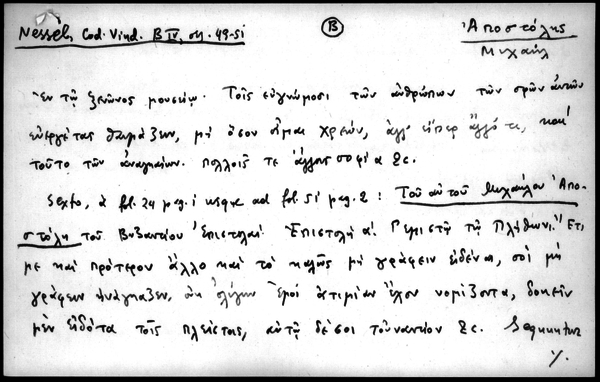 Nessel, Cod. Vind. B IV, σελ. 49-51
Β
Ἀποστόλης
Μιχαήλ
Ἐν τῷ ξενῶνος μουσείῳ. Τοῖς εὐγνώμοσι τῶν ἀνθρώπων τῶν σφῶν αὐτῶν
εὐεργέτας θαυμάζειν, μὴ ὅσον οἶμαι χρεών, ἀλλ' εἴπερ ἄλλό τι, καὶ
τοῦτο τῶν ἀναγκαίων. πολλοῖς τε ἄλλοις σοφία &c.
Sexto, à fol. 24 pag. 1 usque ad fol. 51 pag. 2: Τοῦ αὐτοῦ Μιχαήλου Ἀπο-
στόλη τοῦ Βυζαντίου Ἐπιστολαί. Ἐπιστολὴ α'. Γεμιστῷ τῷ Πλήθωνι. Εἴ
με καὶ πρότερον ἄλλο καὶ τὸ καλῶς μὴ γράφειν εἰδέναι, σοὶ μὴ
γράφειν ἠνάγκαζεν, οὐκ ὀλίγην ἐμοὶ ἀτιμίαν ἔχον νομίζοντα, δοκεῖν
μὲν εἰδότα τοῖς πλείστοις, αὐτῷ δέ σοι τοὐναντίον &c. Sequuntur
%.